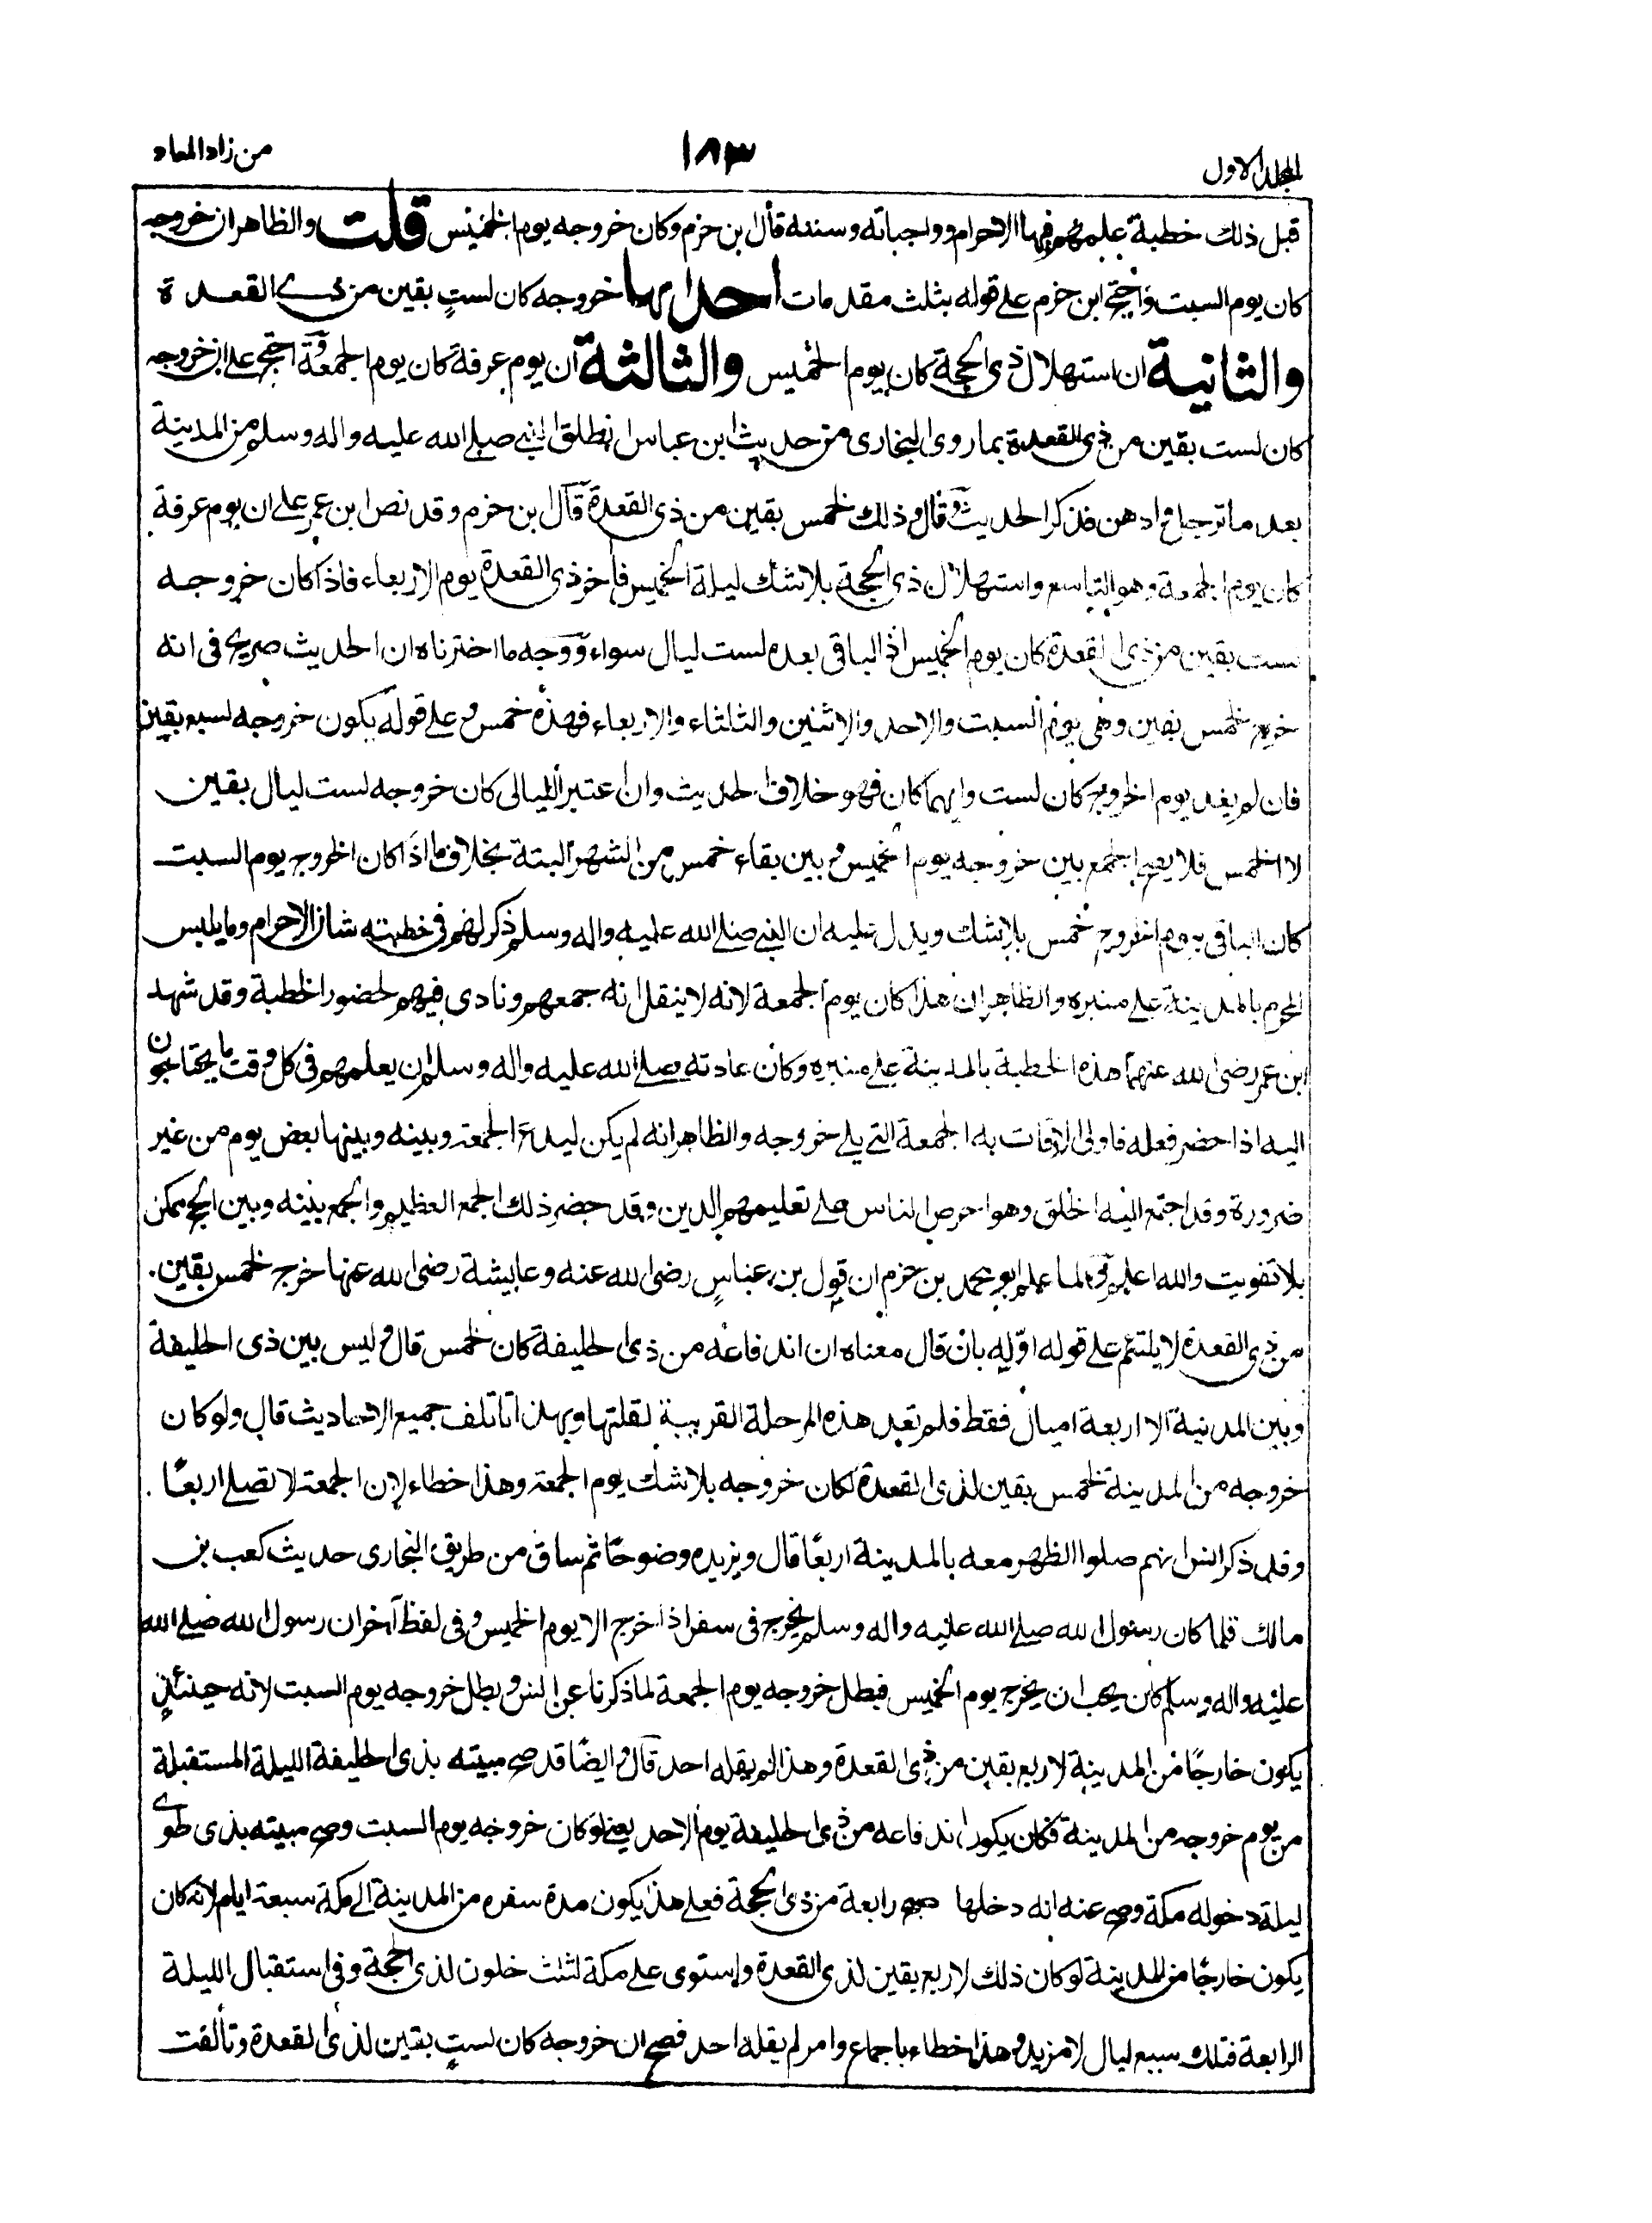 المجلد الاول
١٨٣
من زاد المعاد
قبل ذلك خطبة علمهم فيها الاحرام وواجباته وسننه قال ابن حزم وكان خروجه يوم الخميس قلت والظاهر ان خروجه
كان يوم السبت واحتج ابن حزم على قوله بثلث مقدمات احدابها خروجه كان لستٍ بقين من ذي القعدة
والثانية ان استهلال ذي الحجة كان يوم الخميس والثالثة ان يوم عرفة كان يوم الجمعة واحتج على ان خروجه
كان لست بقين من ذي القعدة بما روى البخارى من حديث ابن عباس انطلق النبي صلے الله عليه واله وسلم من المدينة
بعد ما ترجل وادهن فذكر الحديث وقال وذلك لخمس بقين من ذي القعدة قال ابن حزم وقد نص ابن عمر على ان يوم عرفة
كان يوم الجمعة وهو التاسع واستهلال ذي الحجة بلا شك ليلة الخميس فاخر ذي القعدة يوم الاربعاء فاذا كان خروجه
لست بقين من ذي القعدة كان يوم الخميس اذ الباقى بعده لست ليال سواء ووجه ما اخترناه ان الحديث صريح فى انه
خرج لخمس بقين وهي يوم السبت والاحد والاثنين والثلثاء والاربعاء فهذه خمس وعلى قوله يكون خروجه لسبع بقين
فان لم يعد يوم الخروج كان لست وايهما كان فهو خلاف الحديث وان اعتبر الليالى كان خروجه لست ليال بقين
لا الخمس فلا يصح الجمع بين خروجه يوم الخميس وبين بقاء خمس من الشهر البتة بخلاف ما اذا كان الخروج يوم السبت
كان الباقى بيوم الخروج خمس بلا شك ويدل عليه ان النبي صلے الله عليه واله وسلم ذكر لهم فى خطبته شان الاحرام وما يلبس
المحرم بالمدينة على منبره والظاهر ان هذا كان يوم الجمعة لانه لا ينقل انه جمعهم ونادى فيهم لحضور الخطبة وقد شهد
ابن عمر رضى الله عنهما هذه الخطبة بالمدينة على منبره وكان عادته صلے الله عليه واله وسلم ان يعلمهم فى كل وقت ما يحتاجون
اليه اذا حضر فعله فاولى الاوقات به الجمعة التي يلے خروجه والظاهر انه لم يكن ليدع الجمعة وبينه وبينها بعض يوم من غير
ضرورة وقد اجتمع اليه الخلق وهو احرص الناس على تعليمهم الدين وقد حضر ذلك الجمع العظيم والجمع بينه وبين الحج ممكن
بلا تفويت والله اعلم ولما علم ابو محمد بن حزم ان قول بن عباس رضى الله عنه وعايشة رضى الله عنها خرج لخمس بقين
من ذي القعدة لا يلتئم على قوله اوّله بان قال معناه ان اندفاعه من ذى الحليفة كان لخمس قال وليس بين ذى الحليفة
وبين المدينة الا اربعة اميال فقط فلم تعد هذه المرحلة القريبة لقلتها وبهذا تاتلف جميع الاحاديث قال ولو كان
خروجه من المدينة لخمس بقين لذى القعدة لكان خروجه بلا شك يوم الجمعة وهذا خطاء لان الجمعة لا تصلے اربعًا
وقد ذكر انس انهم صلوا الظهر معه بالمدينة اربعًا قال ويزيده وضوحًا ثم ساق من طريق البخارى حديث كعب بن
مالك قلما كان رسول الله صلے الله عليه واله وسلم يخرج فى سفر اذا خرج الا يوم الخميس وفى لفظ آخر ان رسول الله صلے الله
عليه واله وسلم كان يحب ان يخرج يوم الخميس فبطل خروجه يوم الجمعة لما ذكرنا عن انس وبطل خروجه يوم السبت لانه حينئذٍ
يكون خارجًا من المدينة لاربع بقين من ذى القعدة وهذا لم يقله احد قال وايضًا قد صح مبيته بذى الحليفة الليلة المستقبلة
من يوم خروجه من المدينة فكان يكون اندفاعه من ذى الحليفة يوم الاحد يعنى لو كان خروجه يوم السبت وصح مبيته بذى طوے
ليلة دخوله مكة وصح عنه انه دخلها صبح رابعة من ذى الحجة فعلے هذا يكون مدة سفره من المدينة الے مكة سبعة ايام لانه كان
يكون خارجًا من المدينة لو كان ذلك لاربع بقين لذى القعدة واستوى على مكة لثلث خلون لذى الحجة وفى استقبال الليلة
الرابعة فتلك سبع ليال لا مزيد وهذا خطاء باجماع وامر لم يقله احد فصح ان خروجه كان لستٍ بقين لذى القعدة وتألفت